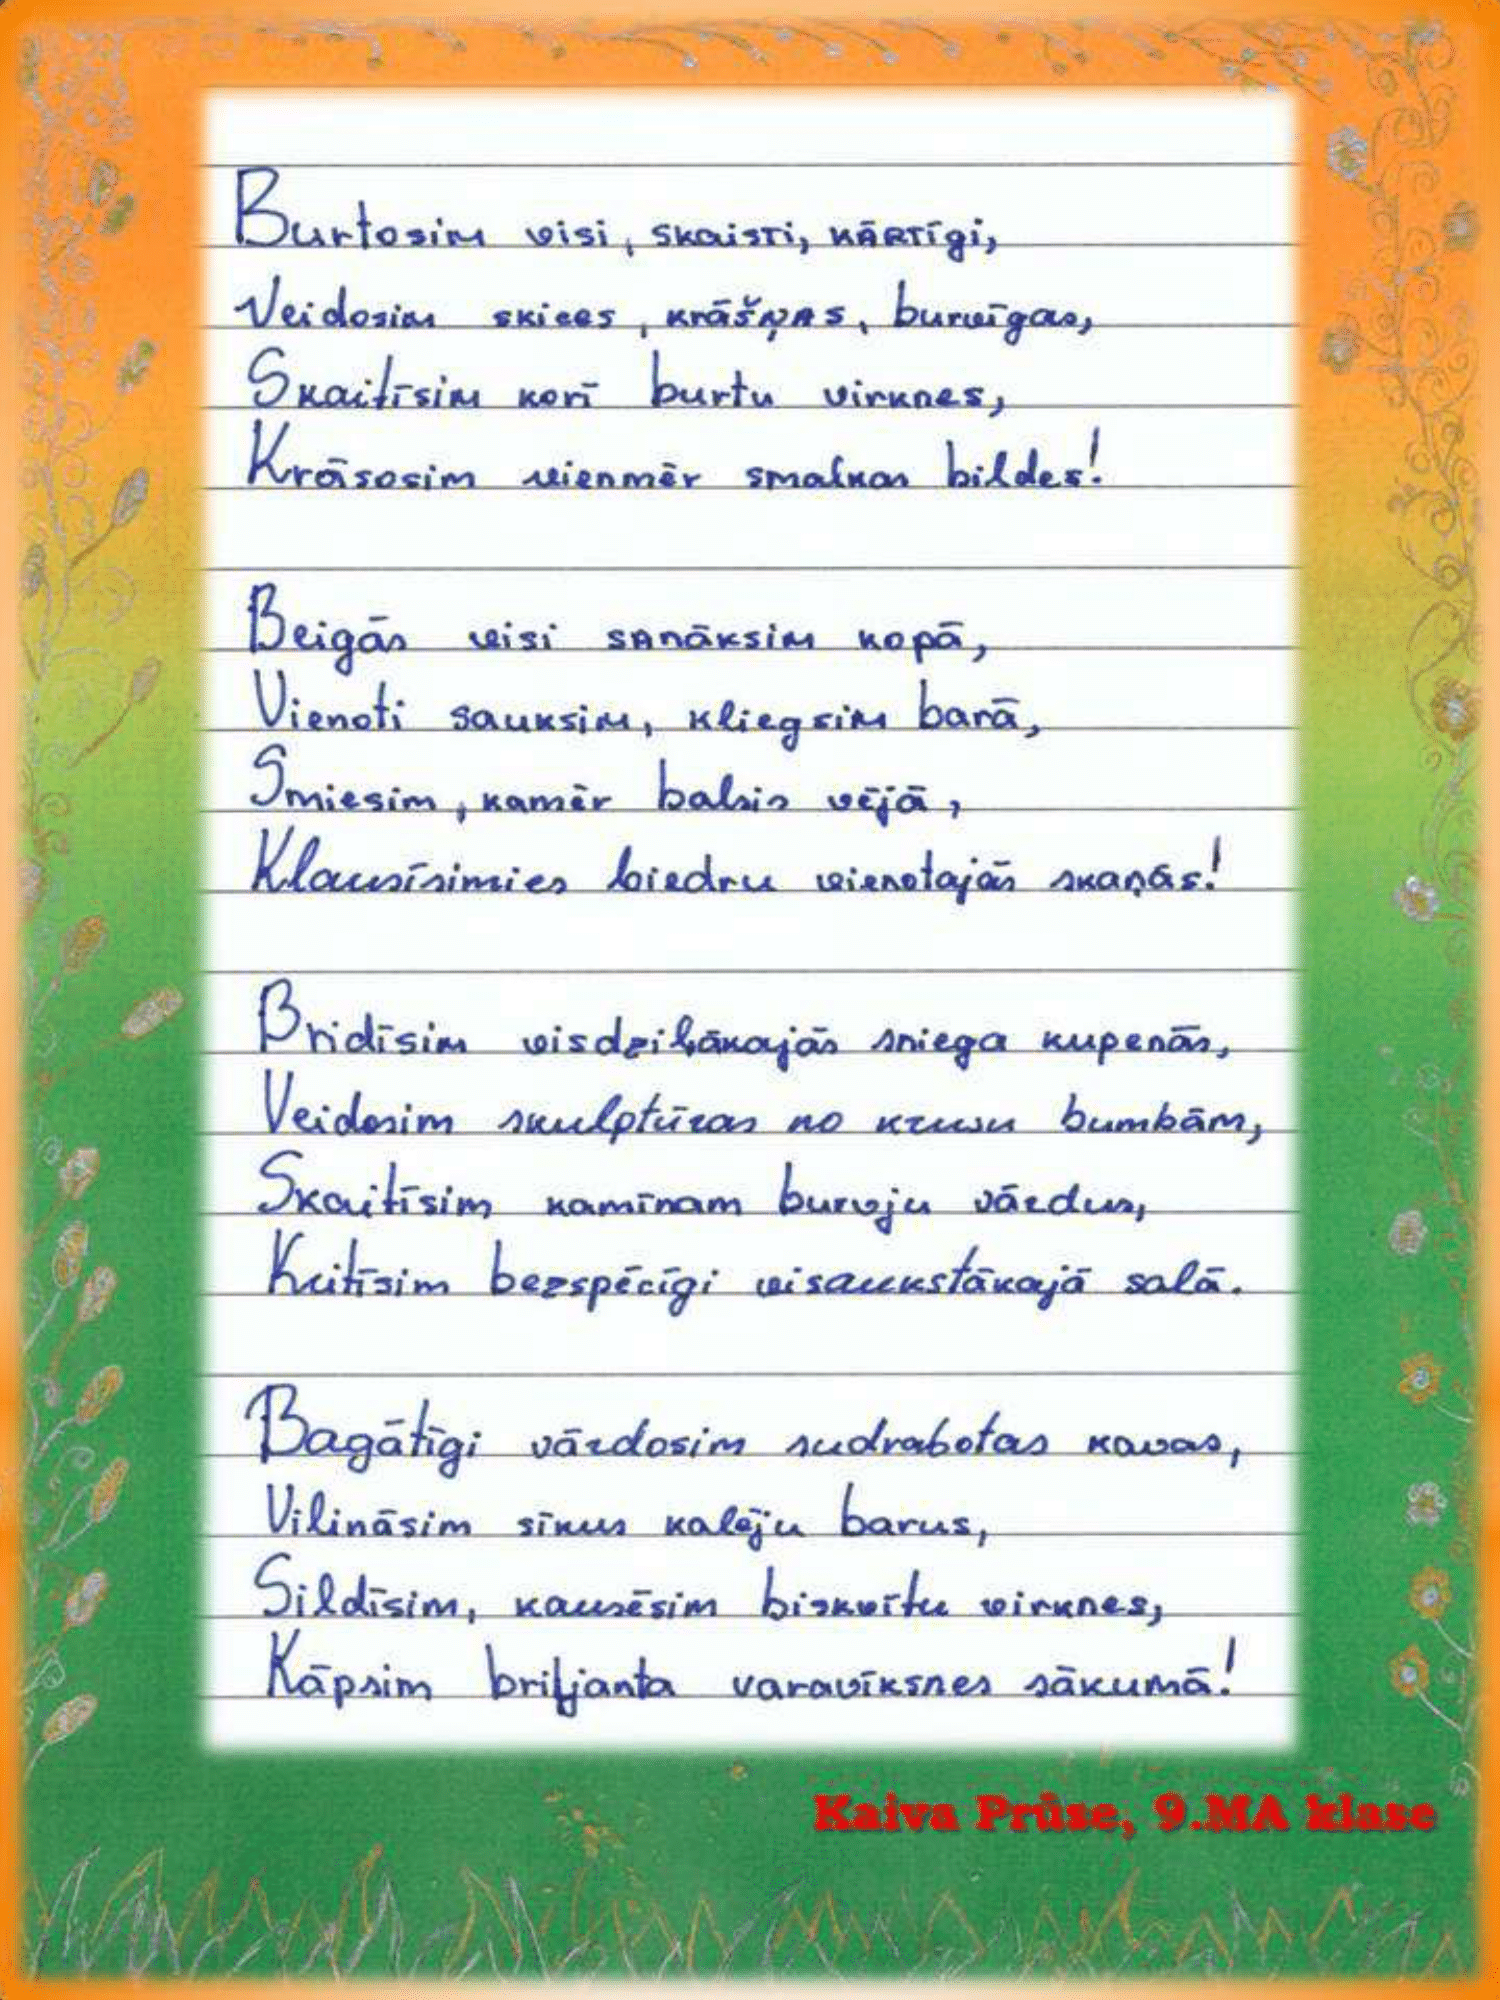 Burtosim visi, skaisti, kārtīgi,
Veidosim skices, krāšņas, burvīgas,
Skaitīsim korī burtu virknes,
Krāsosim vienmēr smalkas bildes!
Beigās visi sanāksim kopā,
Vienoti sauksim, kliegsim barā,
Smiesim, kamēr balsis vējā,
Klausīsimies biedru vienotajās skaņās!
Bridīsim visdziļākajās sniega kupenās,
Veidosim skulptūras no kruvu bumbām,
Skaitīsim kamīnam burvju vārdus,
Kritīsim bezspēcīgi visaukstākajā salā.
Bagātīgi vārdosim sudrabotas kavas,
Vilināsim sīkus kalēju barus,
Sildīsim, kausēsim biskvītu virknes,
Kāpsim briļjanta varavīksnes sākumā!
Kaiva Prūse, 9.MA klase